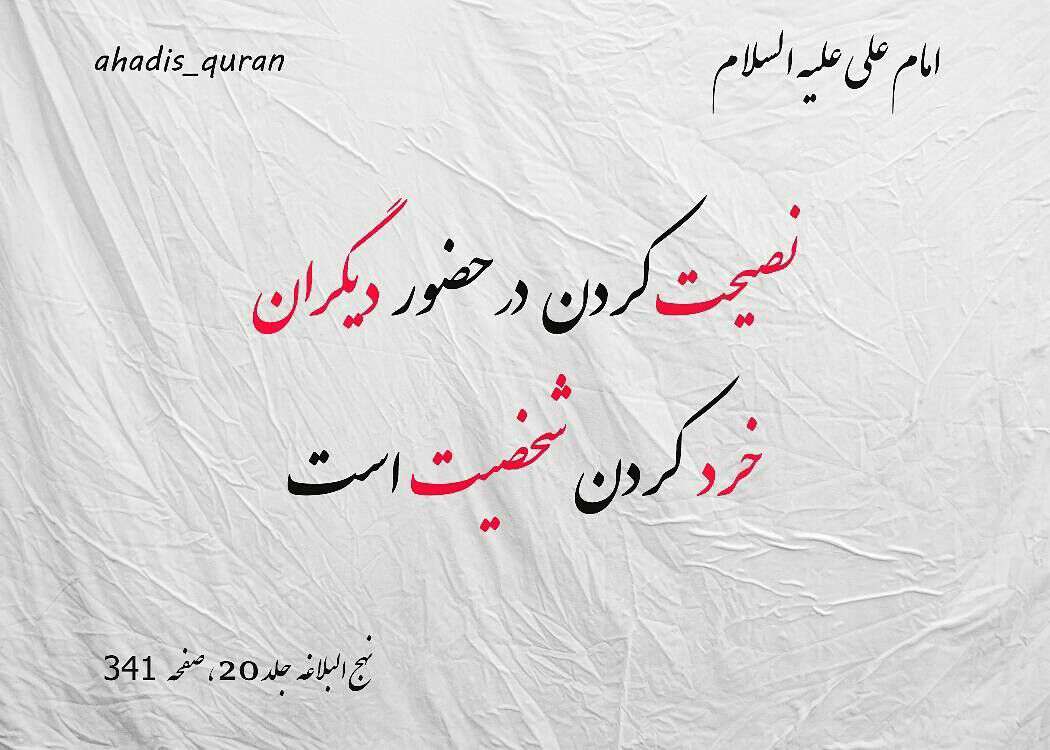 امام علی علیه السلام
ahadis_quran
نصیحت کردن در حضور دیگران
خرد کردن شخصیت است
نهج البلاغه جلد 20، صفحه 341